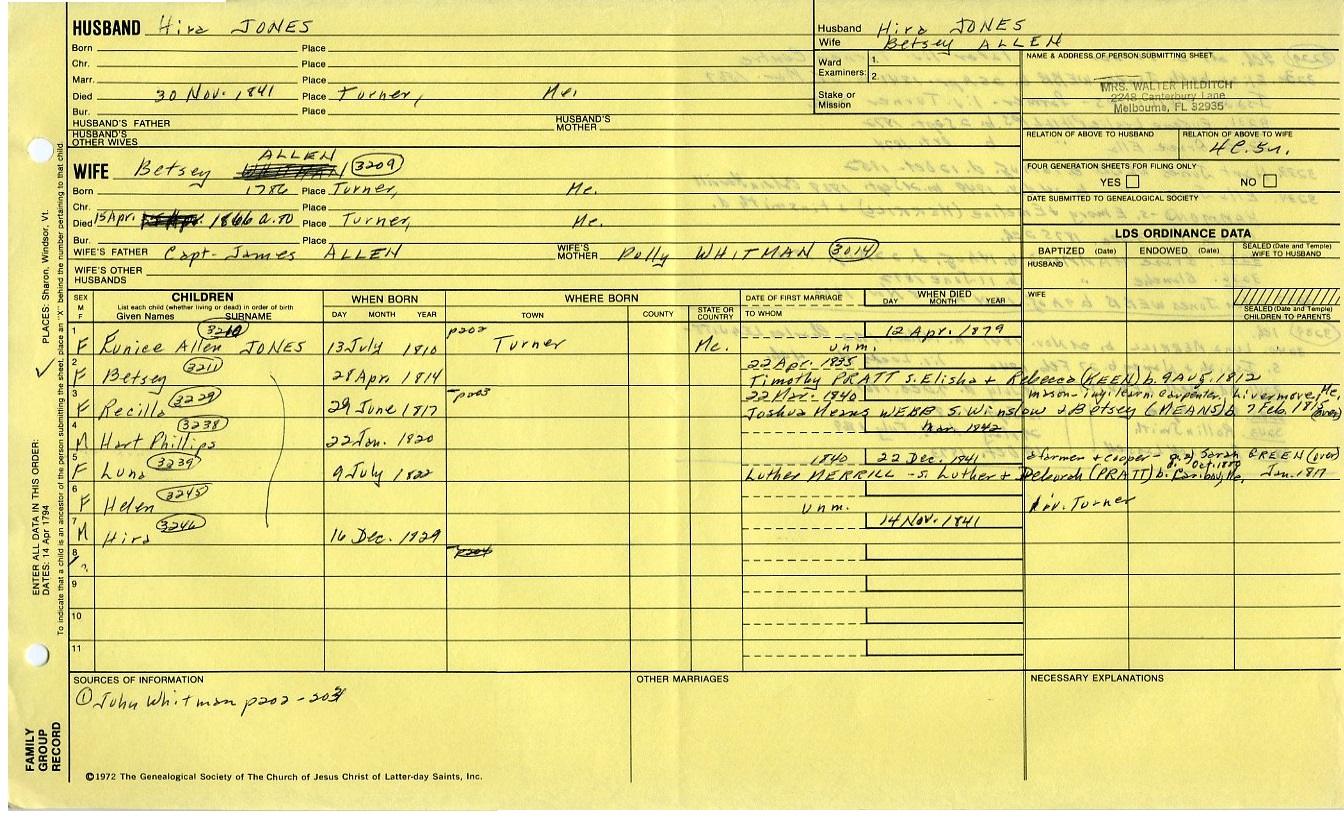 HUSBAND Hira JONES
Born Place
Chr. Place
Marr. Place
Died 30 Nov. 1841 Place Turner, Me.
Bur. Place
HUSBAND'S FATHER HUSBAND'S MOTHER
HUSBAND'S OTHER WIVES
Husband Hira JONES
Wife Betsey ALLEN
Ward Examiners: 1.
2.
Stake or Mission
NAME & ADDRESS OF PERSON SUBMITTING SHEET
MRS. WALTER HILDITCH
2248 Canterbury Lane
Melbourne, FL 32935
RELATION OF ABOVE TO HUSBAND RELATION OF ABOVE TO WIFE
4C.5n.
FOUR GENERATION SHEETS FOR FILING ONLY
YES NO
DATE SUBMITTED TO GENEALOGICAL SOCIETY
ALLEN
WIFE Betsey 3209
Born 1786 Place Turner, Me.
Chr. Place
Died 15 Apr. 1866 a.80 Place Turner, Me.
Bur. Place
WIFE'S FATHER Capt. James ALLEN WIFE'S MOTHER Polly WHITMAN 3014
WIFE'S OTHER HUSBANDS
LDS ORDINANCE DATA
BAPTIZED (Date) ENDOWED (Date) SEALED (Date and Temple) WIFE TO HUSBAND
HUSBAND
WIFE
SEALED (Date and Temple) CHILDREN TO PARENTS
SEX M F CHILDREN WHEN BORN WHERE BORN DATE OF FIRST MARRIAGE WHEN DIED
List each child (whether living or dead) in order of birth
Given Names SURNAME DAY MONTH YEAR TOWN COUNTY STATE OR COUNTRY TO WHOM DAY MONTH YEAR
1 3210 p202 12 Apr. 1879
F Eunice Allen JONES 13 July 1810 Turner Me. unm.
2 3211 22 Apr. 1835
F Betsey 28 Apr. 1814 Timothy PRATT s. Elisha + Rebecca (KEEN) b. 9 Aug. 1812
3 3229 p203 22 Mar. 1840 mason - carpenter, Livermore, Me.
F Recilla 29 June 1817 Joshua Means WEBB s. Winslow & Betsey (MEANS) b. 7 Feb. 1815 (over)
4 3238 Mar. 1842
M Hart Phillips 22 Jan. 1820
5 3239 1840 22 Dec. 1841 a farmer + cooper - Sarah GREEN (over)
d. Oct. 1889
F Luna 9 July 1822 Luther MERRILL - s. Luther + Deborah (PRATT) b. Jan. 1817
6 3245
F Helen unm. liv. Turner
7 3246 14 Nov. 1841
M Hira 16 Dec. 1829
8
9
10
11
SOURCES OF INFORMATION
① John Whitman p202-203
OTHER MARRIAGES
NECESSARY EXPLANATIONS
©1972 The Genealogical Society of The Church of Jesus Christ of Latter-day Saints, Inc.
FAMILY GROUP RECORD
ENTER ALL DATA IN THIS ORDER:
DATES: 14 Apr 1794
PLACES: Sharon, Windsor, Vt.
To indicate that a child is an ancestor of the person submitting the sheet, place an "X" behind the number pertaining to that child.